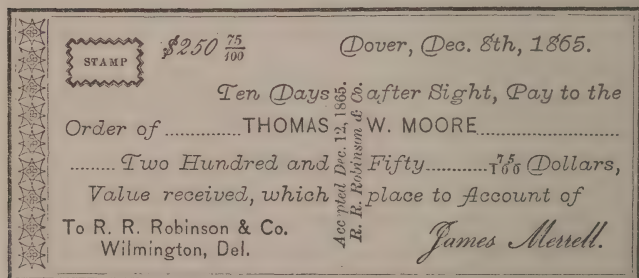 STAMP
$250 75/100
Dover, Dec. 8th, 1865.
Ten Days after Sight, Pay to the
Order of ............ THOMAS W. MOORE ......................
......... Two Hundred and Fifty ............ 75/100 Dollars,
Value received, which place to Account of
To R. R. Robinson & Co.
Wilmington, Del.
James Merrell.
Accepted Dec. 12, 1865.
R. R. Robinson & Co.